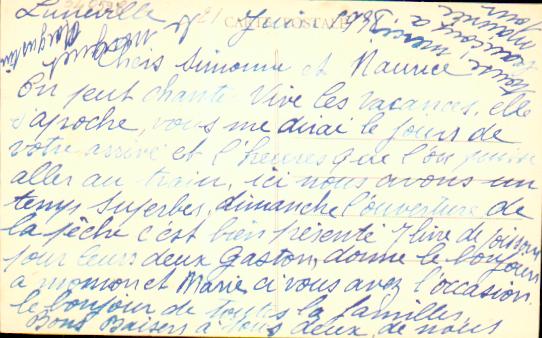 Lunéville 21 Juin
CARTE POSTALE
Chers Simonne et Maurice
On peut chanté Vive les vacances, elle
s'aproche, vous me dirai le jours de
votre arrivé et l'heures que l'on puisse
aller au train, ici nous avons un
temps superbes, dimanche l'ouverture de
la pêche c'est bien présenté 7 livre de poissons
pour leurs deux Gaston, donne le bonjour
à momon et Marie, ci vous avez l'occasion
le bonjour de toutes la familles,
Bons Baisers à tous deux, de nous